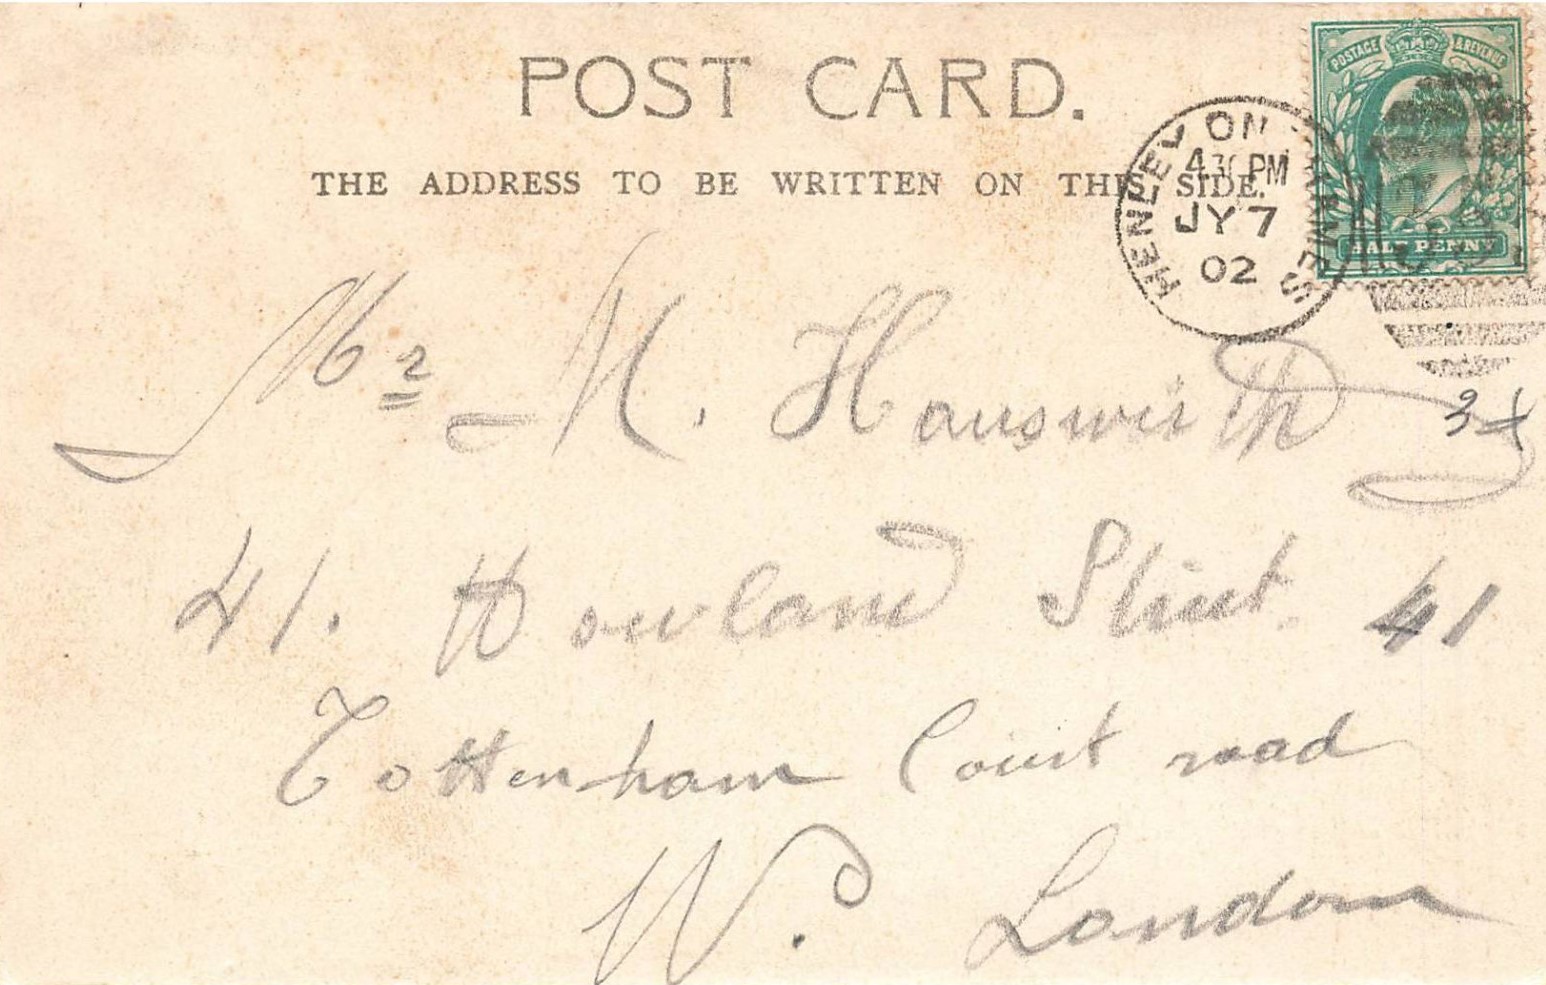 POST CARD.
THE ADDRESS TO BE WRITTEN ON THIS SIDE.
POSTAGE & REVENUE
HALF PENNY
HENLEY ON THAMES
4 30 PM
JY 7
02
Mr M. Hauswirth
3x
41. Howland Street. 41
Tottenham Court road
W. London